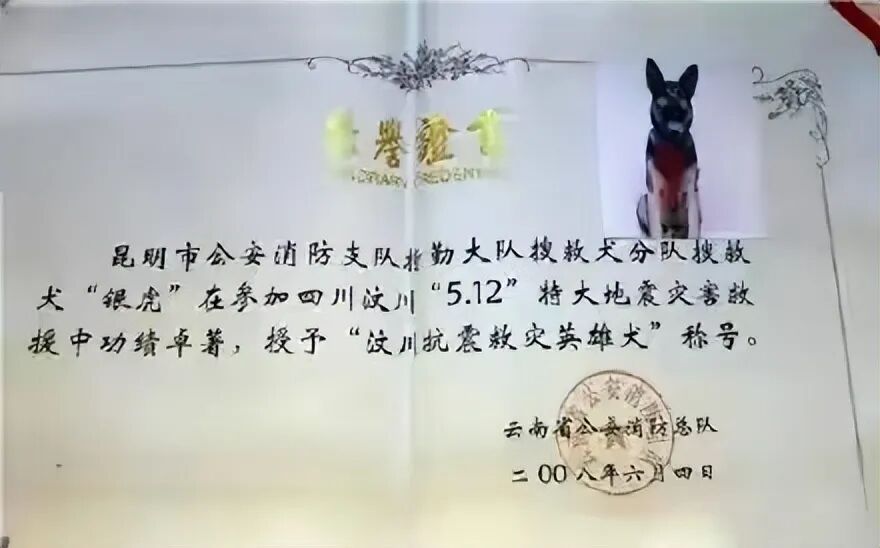 誉證
昆明市公安消防支队特勤大队搜救犬分队搜救
犬“银虎”在参加四川汶川“5.12”特大地震灾害救
援中功绩卓著，授予“汶川抗震救灾英雄犬”称号。
云南省公安消防总队
二00八年六月四日